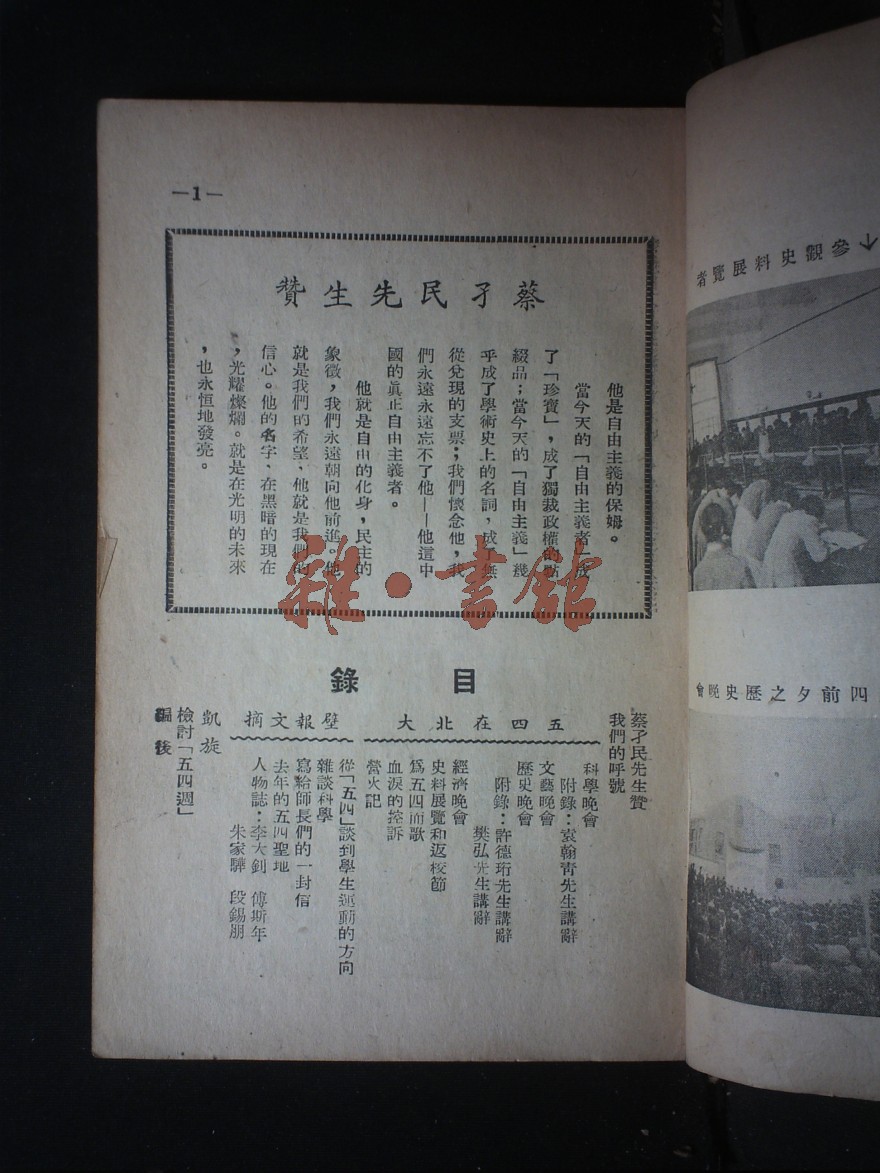 —1—
蔡孑民先生贊
他是自由主義的保姆。
當今天的「自由主義者」成
了「珍寶」，成了獨裁政權的點
綴品；當今天的「自由主義」幾
乎成了學術史上的名詞，成了無
從兌現的支票；我們懷念他，我
們永遠永遠忘不了他——他這中
國的眞正自由主義者。
他就是自由的化身，民主的
象徵，我們永遠朝向他前進。他
就是我們的希望，他就是我們的
信心。他的名字，在黑暗的現在
，光耀燦爛。就是在光明的未來
，也永恒地發亮。
目錄
蔡孑民先生贊
我們的呼號
五四在北大
科學晚會
附錄：袁翰青先生講辭
文藝晚會
歷史晚會
附錄：許德珩先生講辭
樊弘先生講辭
經濟晚會
史料展覽和返校節
爲五四而歌
血淚的控訴
營火記
壁報文摘
從「五四」談到學生運動的方向
雜談科學
寫給師長們的一封信
去年的五四聖地
人物誌：李大釗　傅斯年
朱家驊　段錫朋
凱旋
檢討「五四週」
編後
↓參觀史料展覽者
四前夕之歷史晚會
雜·書館